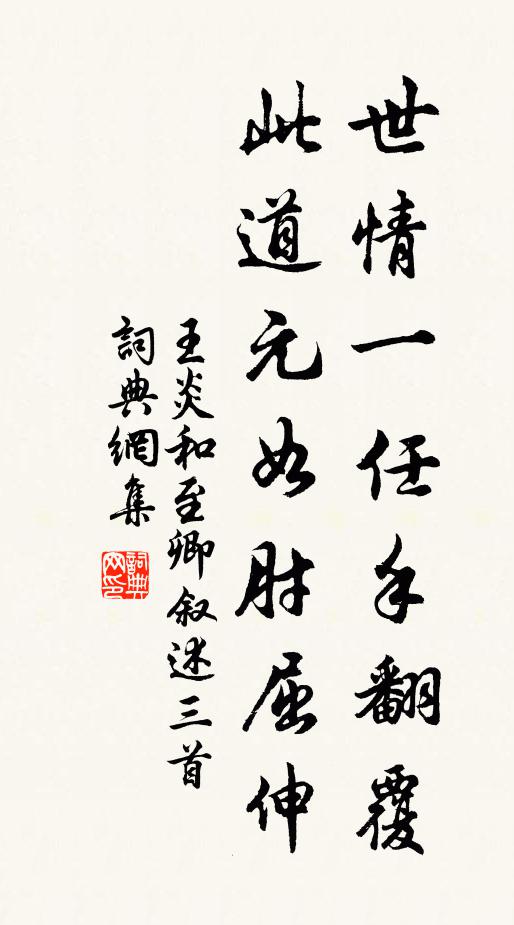 世情一任手翻覆
此道元如肘屈伸
王炎和至卿叙述三首
詞典網集
詞典网印